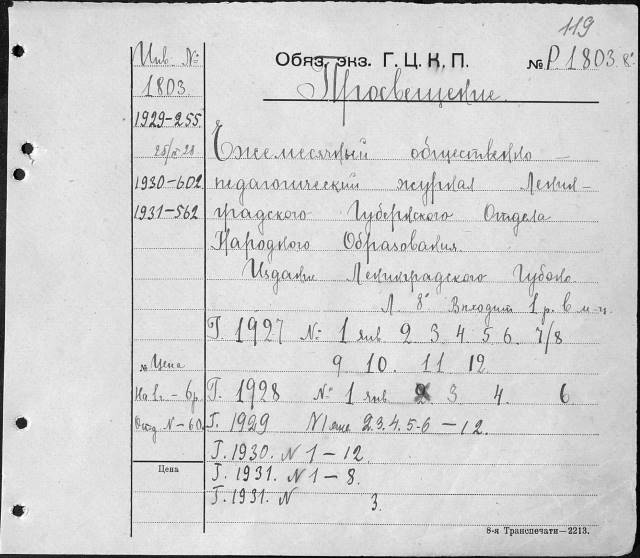 119
Инв. №
1803
Обяз. экз. Г. Ц. К. П.
№ Р1803. 8°
Просвещение.
1929-255.
Ежемесячный общественно —
1930-602
педагогический журнал Ленин-
1931-562
градского Губернского Отдела
Народного Образования.
Издание Ленинградского Губоно.
Л. 8° Выходит 1 р. в м-ц.
Г. 1927 № 1 янв 2 3 4 5 6. 7/8
9 10. 11 12.
№ Цена
На 1 г. - 6 р.
Г. 1928 № 1 янв 3 4. 6
Отд. N - 60.
Г. 1929 N 1 янв. 2.3.4.5-6 — 12.
Г. 1930. N 1 - 12.
Цена
Г. 1931. N 1 - 8.
Г. 1931. N 3.
8-я Транспечати—2213.